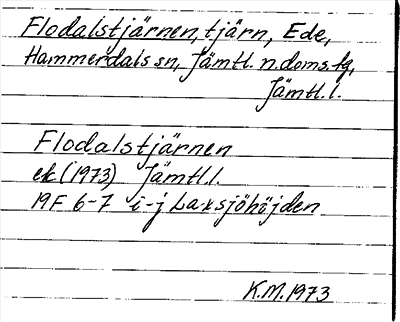 Flodalstjärnen, tjärn, Ede,
Hammerdals sn, Jämtl. n. doms. fg,
Jämtl. l.
Flodalstjärnen
ek (1973) Jämtl. l.
19F 6-7 i-j Laxsjöhöjden
K.M. 1973